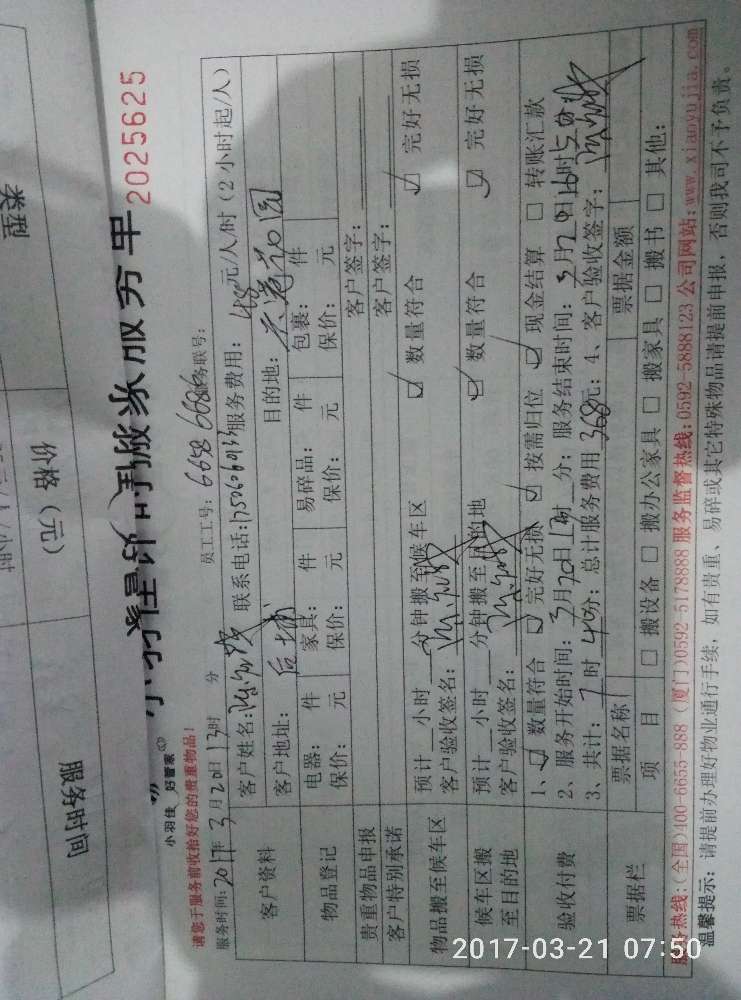 类型
价格（元）
服务时间
小羽佳 好管家
搬家服务单
2025625
请您于服务前收拾好您的贵重物品！
员工工号：6658 6686 服务联号：
服务时间：2017年3月20日13时 分
客户资料
客户姓名： 联系电话： 服务费用：48元/人/时（2小时起/人）
客户地址：后埔 目的地：
物品登记
电器： 件 家具： 件 易碎品： 件 包裹： 件
保价： 元 保价： 元 保价： 元 保价： 元
贵重物品申报 客户签字：
客户特别承诺 客户签字：
物品搬至候车区
预计 小时 分钟搬至候车区 ☑ 数量符合 ☑ 完好无损
客户验收签名：
候车区搬至目的地
预计 小时 分钟搬至目的地 ☑ 数量符合 ☑ 完好无损
客户验收签名：
验收付费
1、☑ 数量符合 ☑ 完好无损 ☑ 按需归位 ☑ 现金结算 □ 转账汇款
2、服务开始时间：3月20日 时 分；服务结束时间：3月20日16时 分
3、共计：7时4分；总计服务费用368元；4、客户验收签字：
票据栏
票据名称 票据金额
项 目 □ 搬设备 □ 搬办公家具 □ 搬家具 □ 搬书 □ 其他：
服务热线：(全国)400-6655-888 (厦门)0592-5178888 服务监督热线：0592-5888123 公司网站：www.xiaoyujia.com
温馨提示：请提前办理好物业通行手续，如有贵重、易碎或其它特殊物品请提前申报，否则我司不予负责。
2017-03-21 07:50